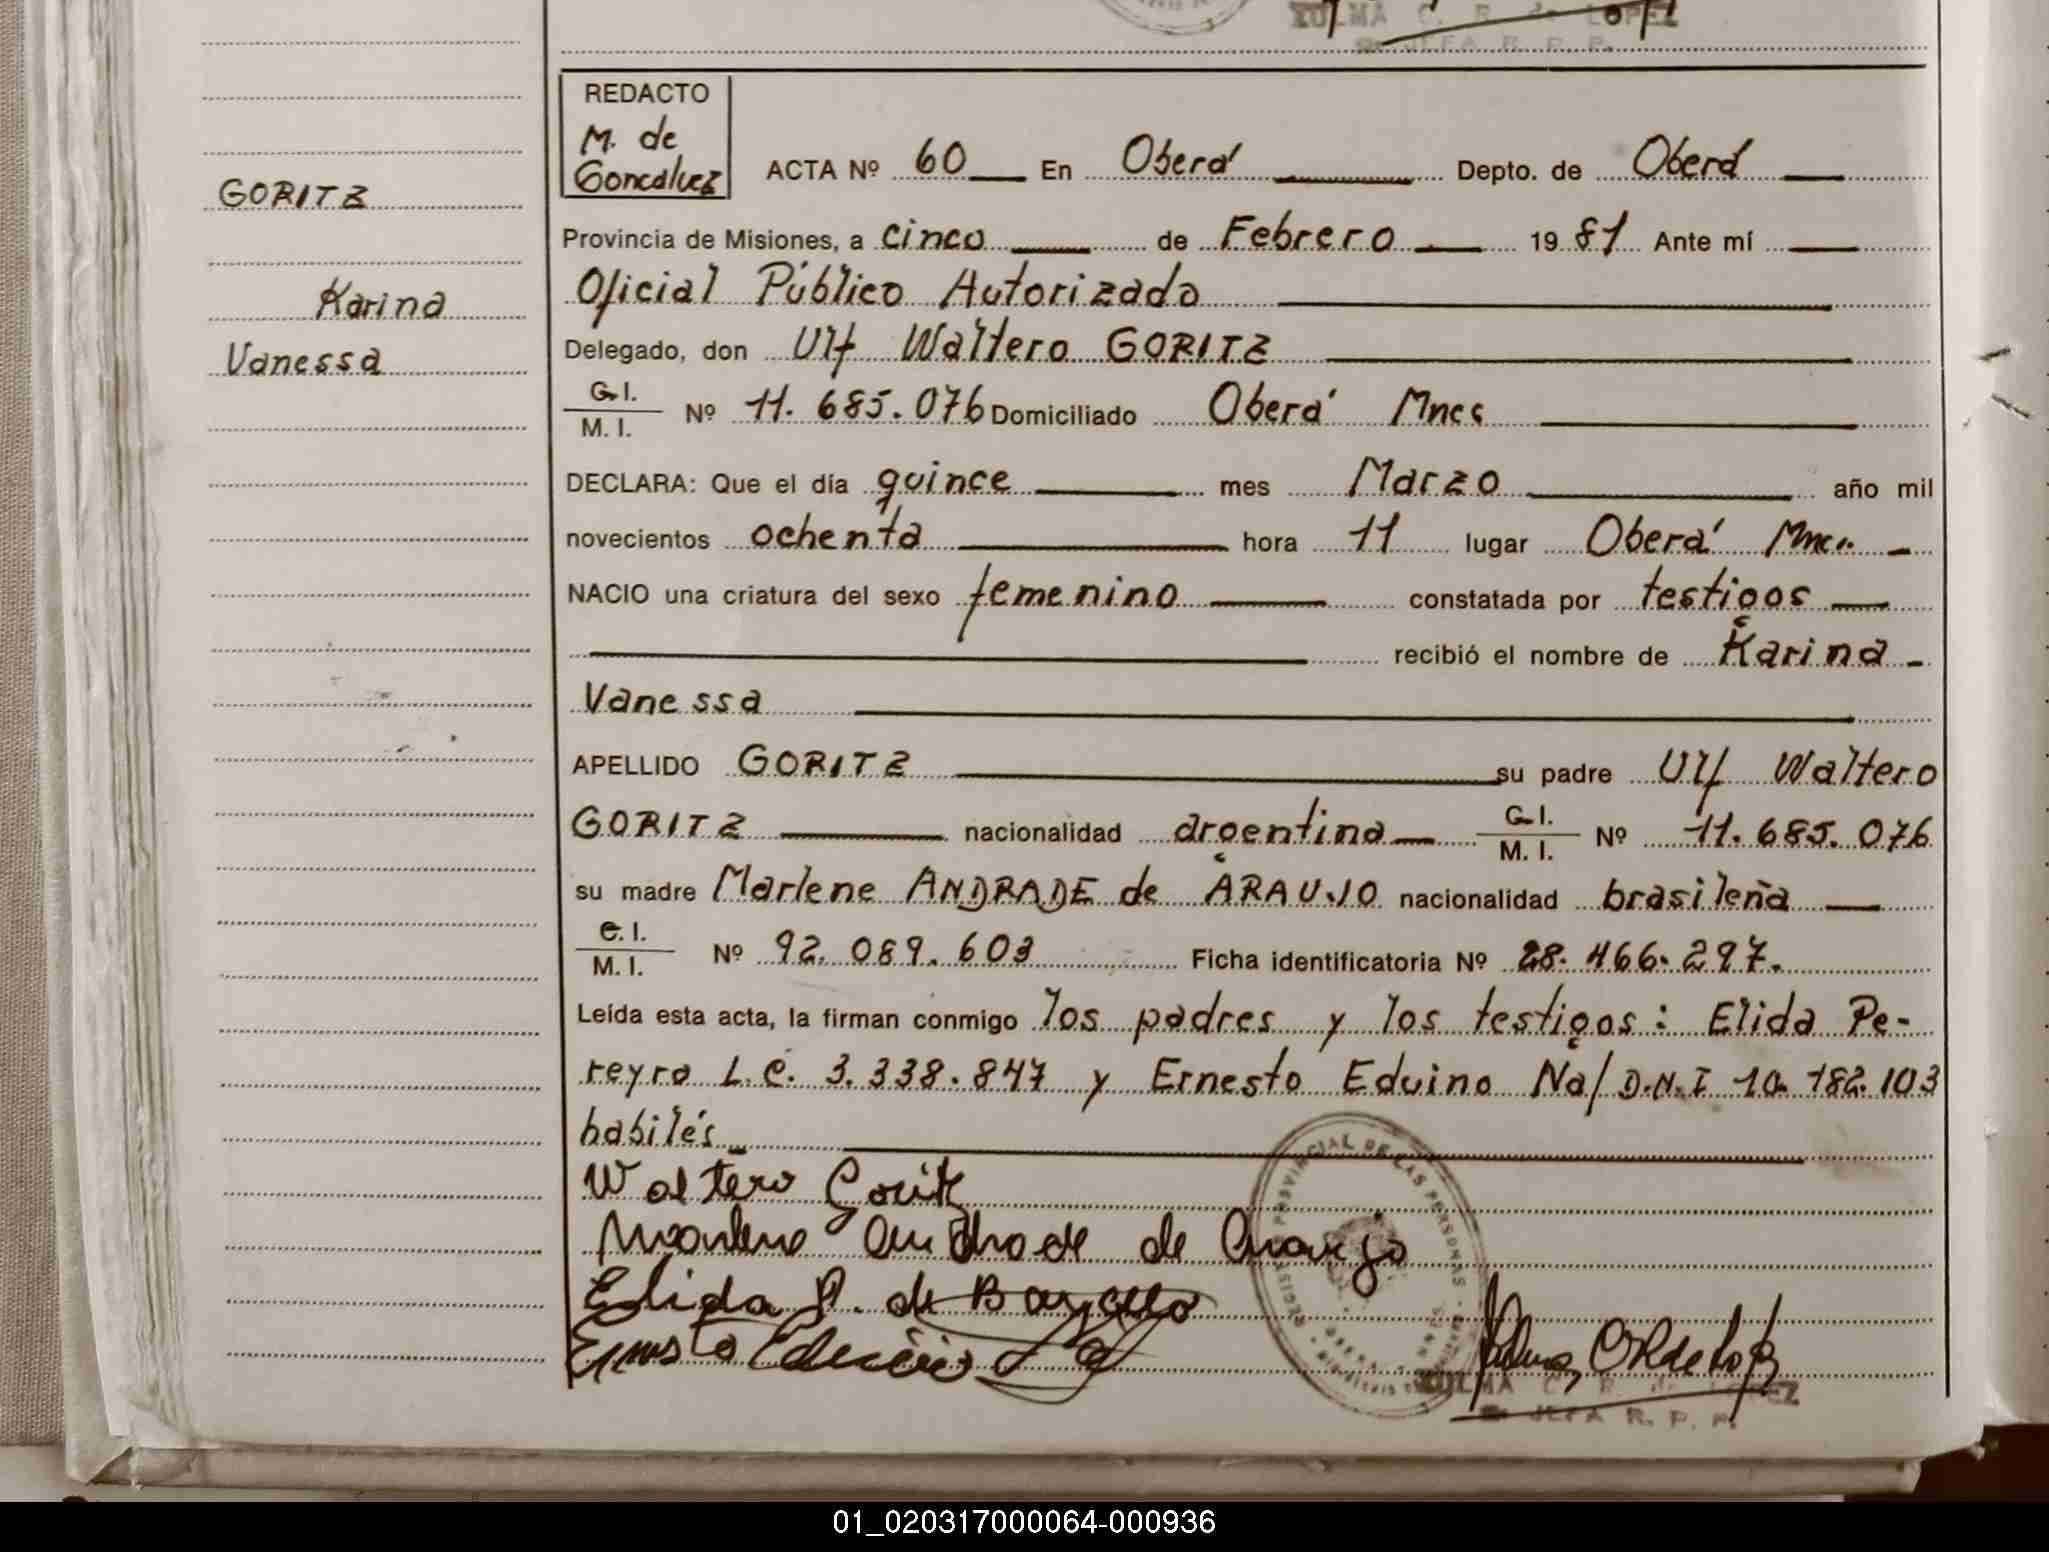 ZULMA C. R. de LOPEZ
JEFA R. P. P.
REDACTO
M. de
Goncalvez
ACTA Nº 60 En Oberá Depto. de Oberá
GORITZ
Provincia de Misiones, a cinco de Febrero 1981 Ante mí
Karina
Oficial Público Autorizado
Vanessa
Delegado, don Ulf Waltero GORITZ
C.I.
M. I. Nº 11.685.076 Domiciliado Oberá Mnes
DECLARA: Que el día quince mes Marzo año mil
novecientos ochenta hora 11 lugar Oberá Mnes.
NACIO una criatura del sexo femenino constatada por testigos
recibió el nombre de Karina
Vanessa
APELLIDO GORITZ su padre Ulf Waltero
GORITZ nacionalidad argentina C.I.
M. I. Nº 11.685.076
su madre Marlene ANDRADE de ARAUJO nacionalidad brasileña
C.I.
M. I. Nº 92.089.603 Ficha identificatoria Nº 28.466.297.
Leída esta acta, la firman conmigo los padres y los testigos: Elida Pe-
reyra L.C. 3.338.847 y Ernesto Eduino Na/ D.N.I 10.182.103
habilés
Waltero Goritz
Marlene Andrade de Araujo
Elida P. de
Ernesto Eduino
PROVINCIAL DE LAS PERSONAS
ZULMA C. R. de LOPEZ
JEFA R. P. P.
01_020317000064-000936